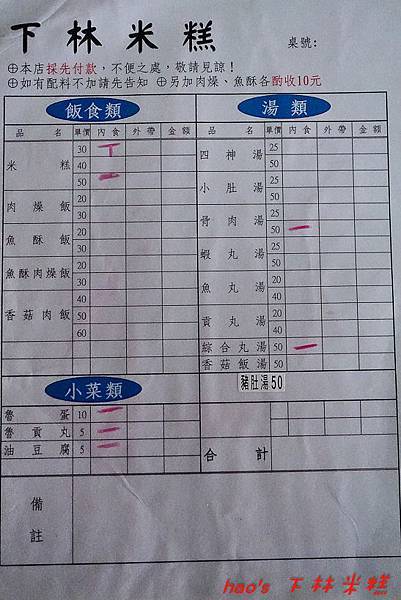 下林米糕
桌號:
⊕本店採先付款，不便之處，敬請見諒！
⊕如有配料不加請先告知 ⊕另加肉燥、魚酥各酌收10元
飯食類
品名 單價 內食 外帶 金額
米糕 30
40
50
肉燥飯 20
30
魚酥飯 20
30
魚酥肉燥飯 30
40
香菇肉飯 50
60
湯類
品名 單價 內食 外帶 金額
四神湯 25
50
小肚湯 25
50
骨肉湯 25
50
蝦丸湯 20
40
魚丸湯 20
40
貢丸湯 20
40
綜合丸湯 50
香菇飯湯 50
豬肚湯 50
小菜類
魯蛋 10
魯貢丸 5
油豆腐 5
合計
備註
hao's 下林米糕